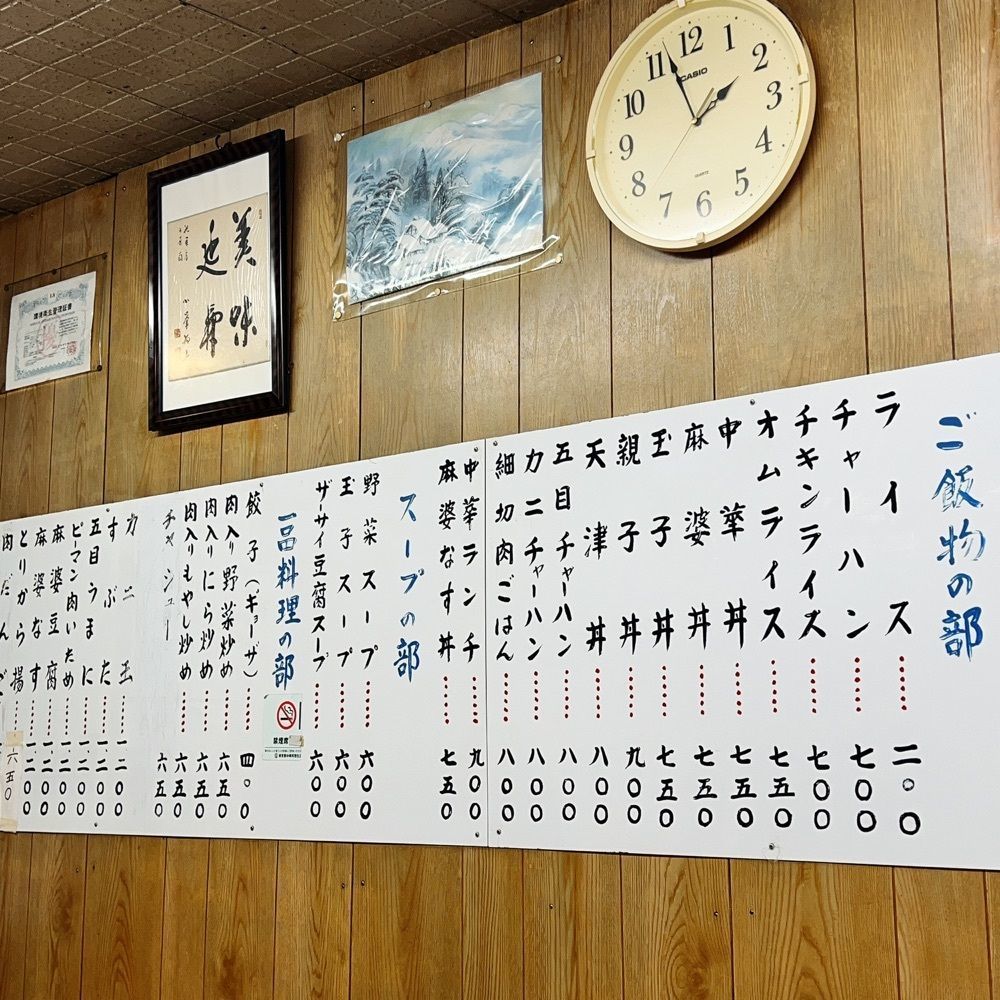 環境衛生管理証書
美味
延齢
CASIO
QUARTZ
12
1
2
3
4
5
6
7
8
9
10
11
ご飯物の部
ライス……二〇〇
チャーハン……七〇〇
チキンライス……七〇〇
オムライス……七五〇
中華丼……七五〇
麻婆丼……七五〇
玉子丼……七五〇
親子丼……九〇〇
天津丼……八〇〇
五目チャーハン……八〇〇
カニチャーハン……八〇〇
細切肉ごはん……八〇〇
中華ランチ……九〇〇
麻婆なす丼……七五〇
スープの部
野菜スープ……六〇〇
玉子スープ……六〇〇
ザーサイ豆腐スープ……六〇〇
一品料理の部
禁煙席
餃子(ギョーザ)……四〇〇
肉入り野菜炒め……六五〇
肉入りにら炒め……六五〇
肉入りもやし炒め……六五〇
チャーシュー……六五〇
カニ玉……一二〇〇
すぶた……一二〇〇
五目うまに……一二〇〇
ピーマン肉いため……一二〇〇
麻婆豆腐……一二〇〇
麻婆なす……一二〇〇
とりから揚……一二〇〇
肉だんご……六五〇